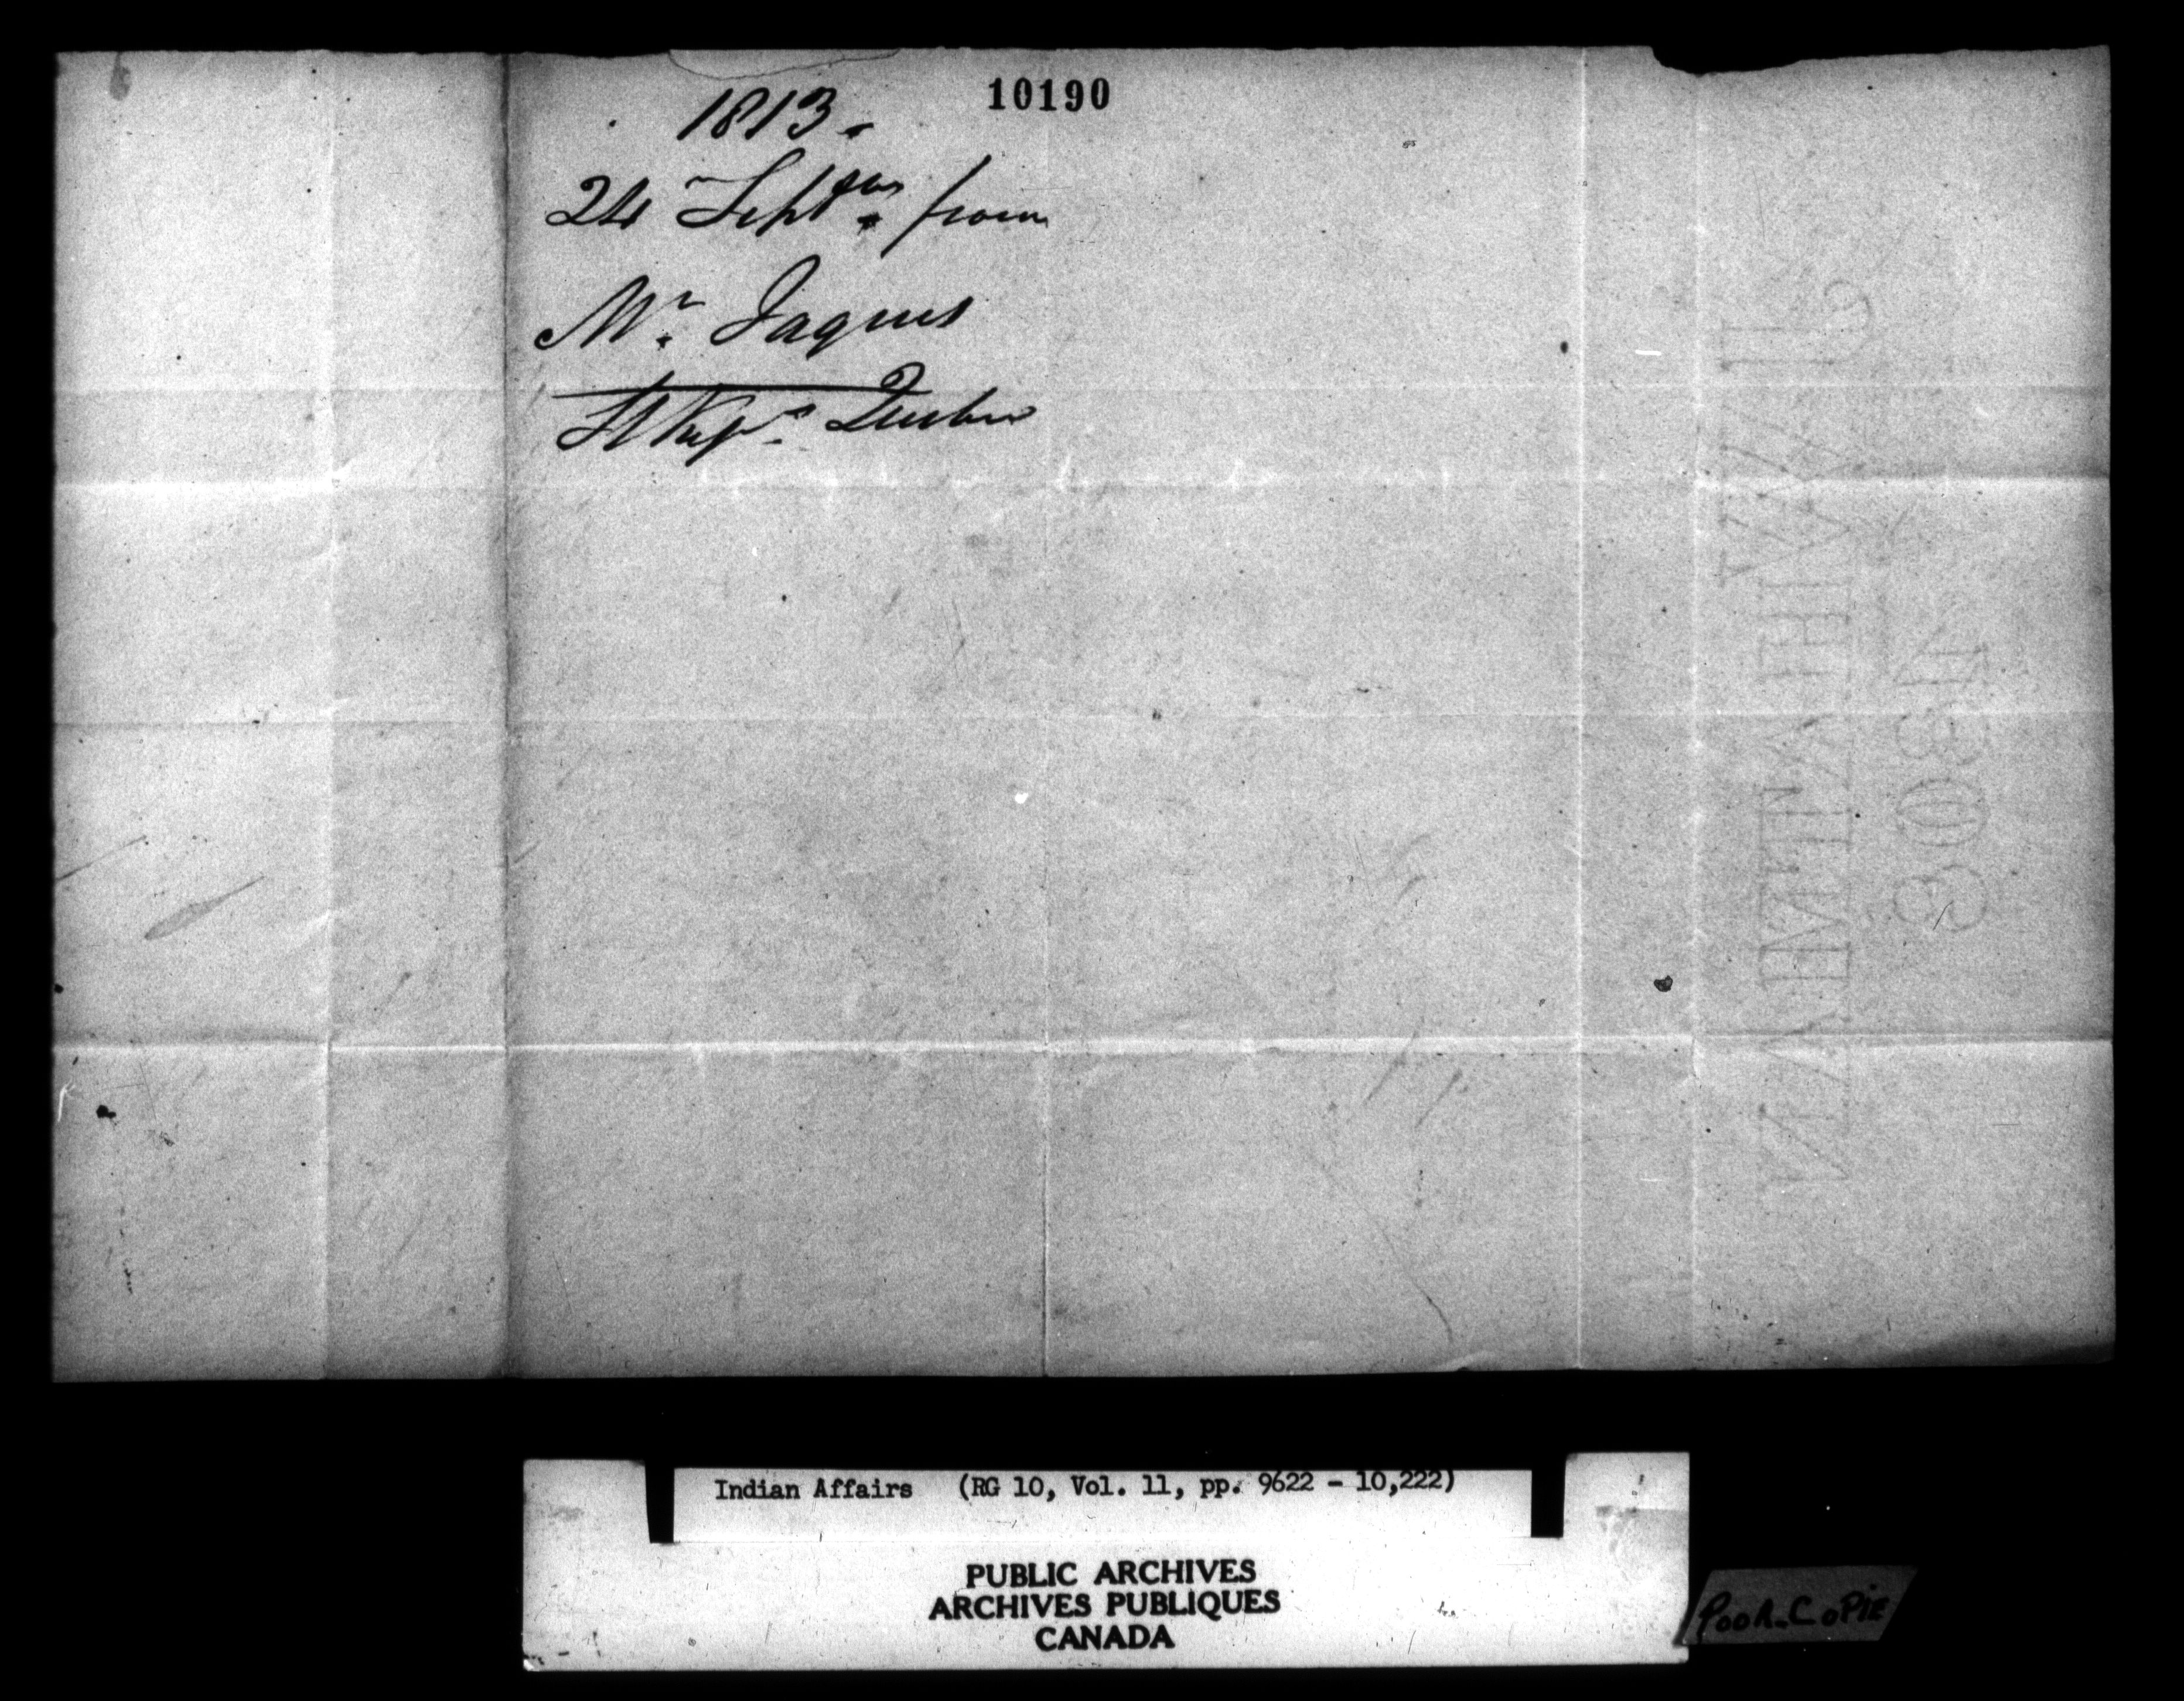 10190
1813.
24 Septber from
Mr. Jaques
St Kepr. Quebec
Indian Affairs (RG 10, Vol. 11, pp. 9622 - 10,222)
PUBLIC ARCHIVES
ARCHIVES PUBLIQUES
CANADA
POOR COPIE